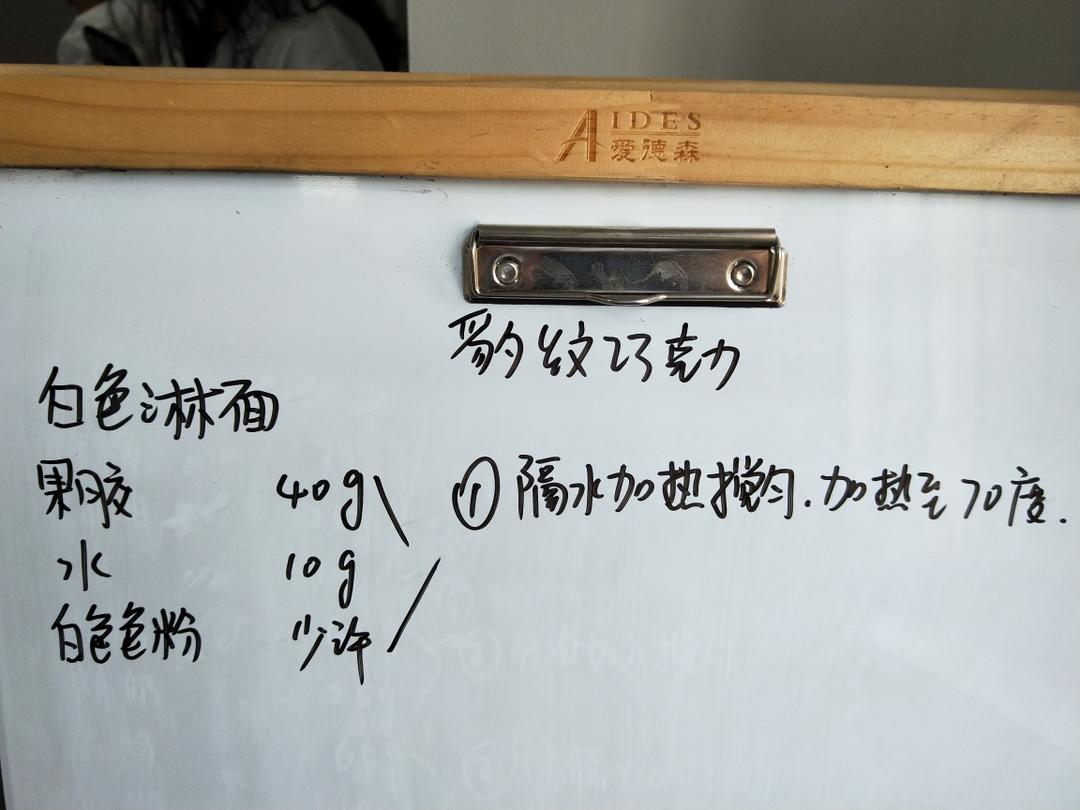 AIDES
爱德森
豹纹巧克力
白色淋面
果胶 40g ① 隔水加热搅匀.加热至70度.
水 10g
白色色粉 少许